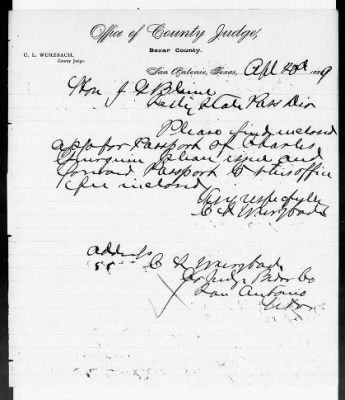 Office of County Judge,
Bexar County.
C. L. WURZBACH,
County Judge.
San Antonio, Texas, Apl 20th 1889
Hon J G Blaine
Secty State Pass Div
Please find inclosed
app for Passport of Charles
please issue and
forward Passport to this office
fee inclosed
Very respectfully
C L Wurzbach
address
C L Wurzbach
Co Judge Bexar Co
San Antonio
Texas